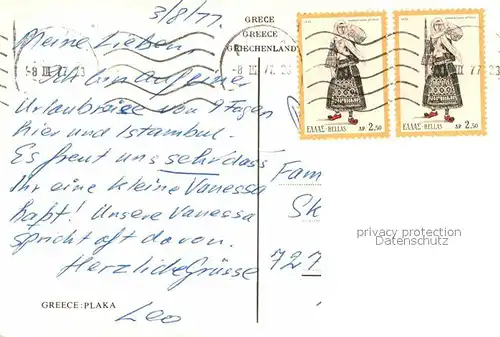 3/8/77.
GRECE
GREECE
GRIECHENLAND
Meine Lieben,
-8 III 77 23
8 III 77 23
III 77 23
Ich bin auf einer
Urlaubsreise von 9 Tagen
hier und Istambul.
Es freut uns sehr dass
Ihr eine kleine Vanessa
habt! Unsere Vanessa
spricht oft davon.
Herzliche Grüsse
Leo
GREECE: PLAKA
ΕΛΛΑΣ-HELLAS ΔΡ. 2,50
ΕΛΛΑΣ-HELLAS ΔΡ. 2,50
Fam
Sk
727
privacy protection
Datenschutz